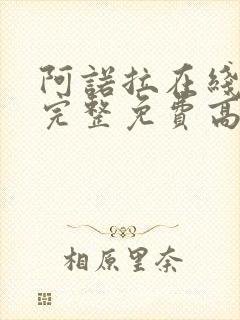 阿諾拉在綫
完整免費高
相原里奈